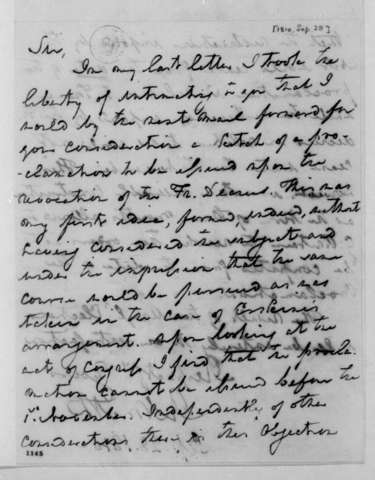 [1810, Sep. 28]
Sir,
In my last letter I took the
liberty of intimating to you that I
would by the next mail forward for
your consideration a sketch of a pro-
clamation to be issued upon the
revocation of the Fr. Decrees. This was
my first idea, formed, indeed, without
having considered the subject and
under the impression that the same
course would be pursued as was
taken in the case of Erskines
arrangement. Upon looking at the
act of Congress I find that the procla-
mation cannot be issued before the
1st November. Independently of other
considerations there is this objection
1145